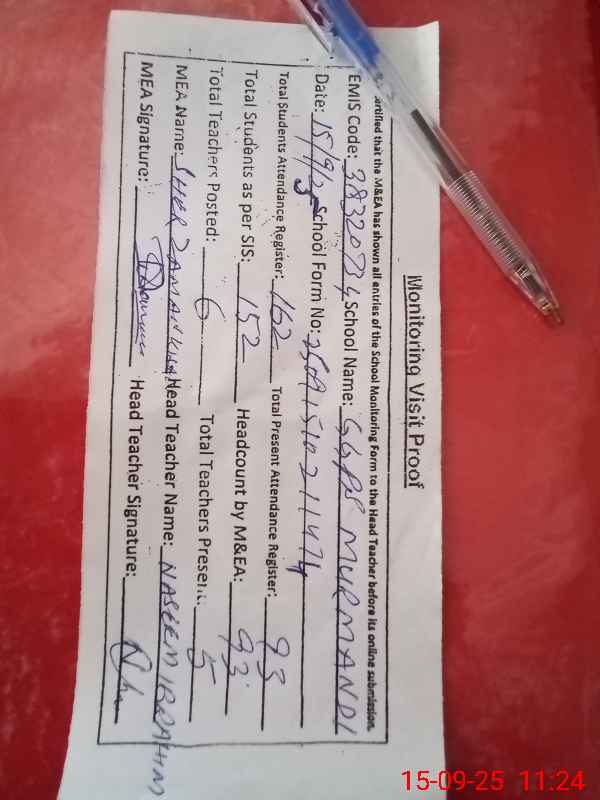 Monitoring Visit Proof
ertified that the M&EA has shown all entries of the School Monitoring Form to the Head Teacher before its online submission.
EMIS Code: 38320734 School Name: GGPS MURMANDI
Date: 15/9/25 School Form No: 25091510211474
Total Students Attendance Register: 162 Total Present Attendance Register: 93
Total Students as per SIS: 152 Headcount by M&EA: 93
Total Teachers Posted: 6 Total Teachers Present: 5
MEA Name: SHER ZAMAN KHAN Head Teacher Name: NASEEM IBRAHIM
MEA Signature: Head Teacher Signature:
15-09-25 11:24